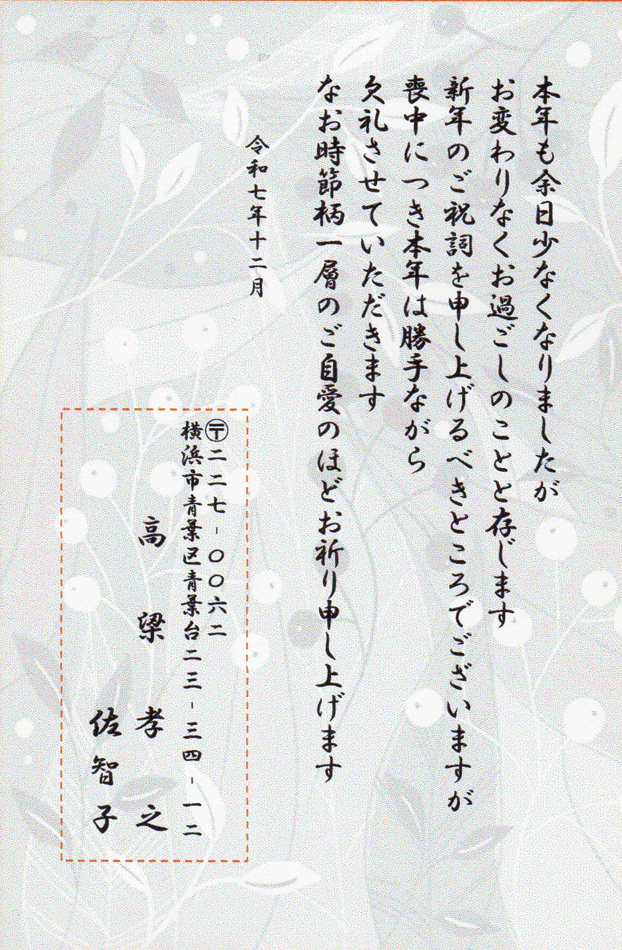 本年も余日少なくなりましたが
お変わりなくお過ごしのことと存じます
新年のご祝詞を申し上げるべきところでございますが
喪中につき本年は勝手ながら
欠礼させていただきます
なお時節柄一層のご自愛のほどお祈り申し上げます
令和七年十二月
〒二二七-〇〇六二
横浜市青葉区青葉台二三-三四-一二
高梁孝之
佐智子